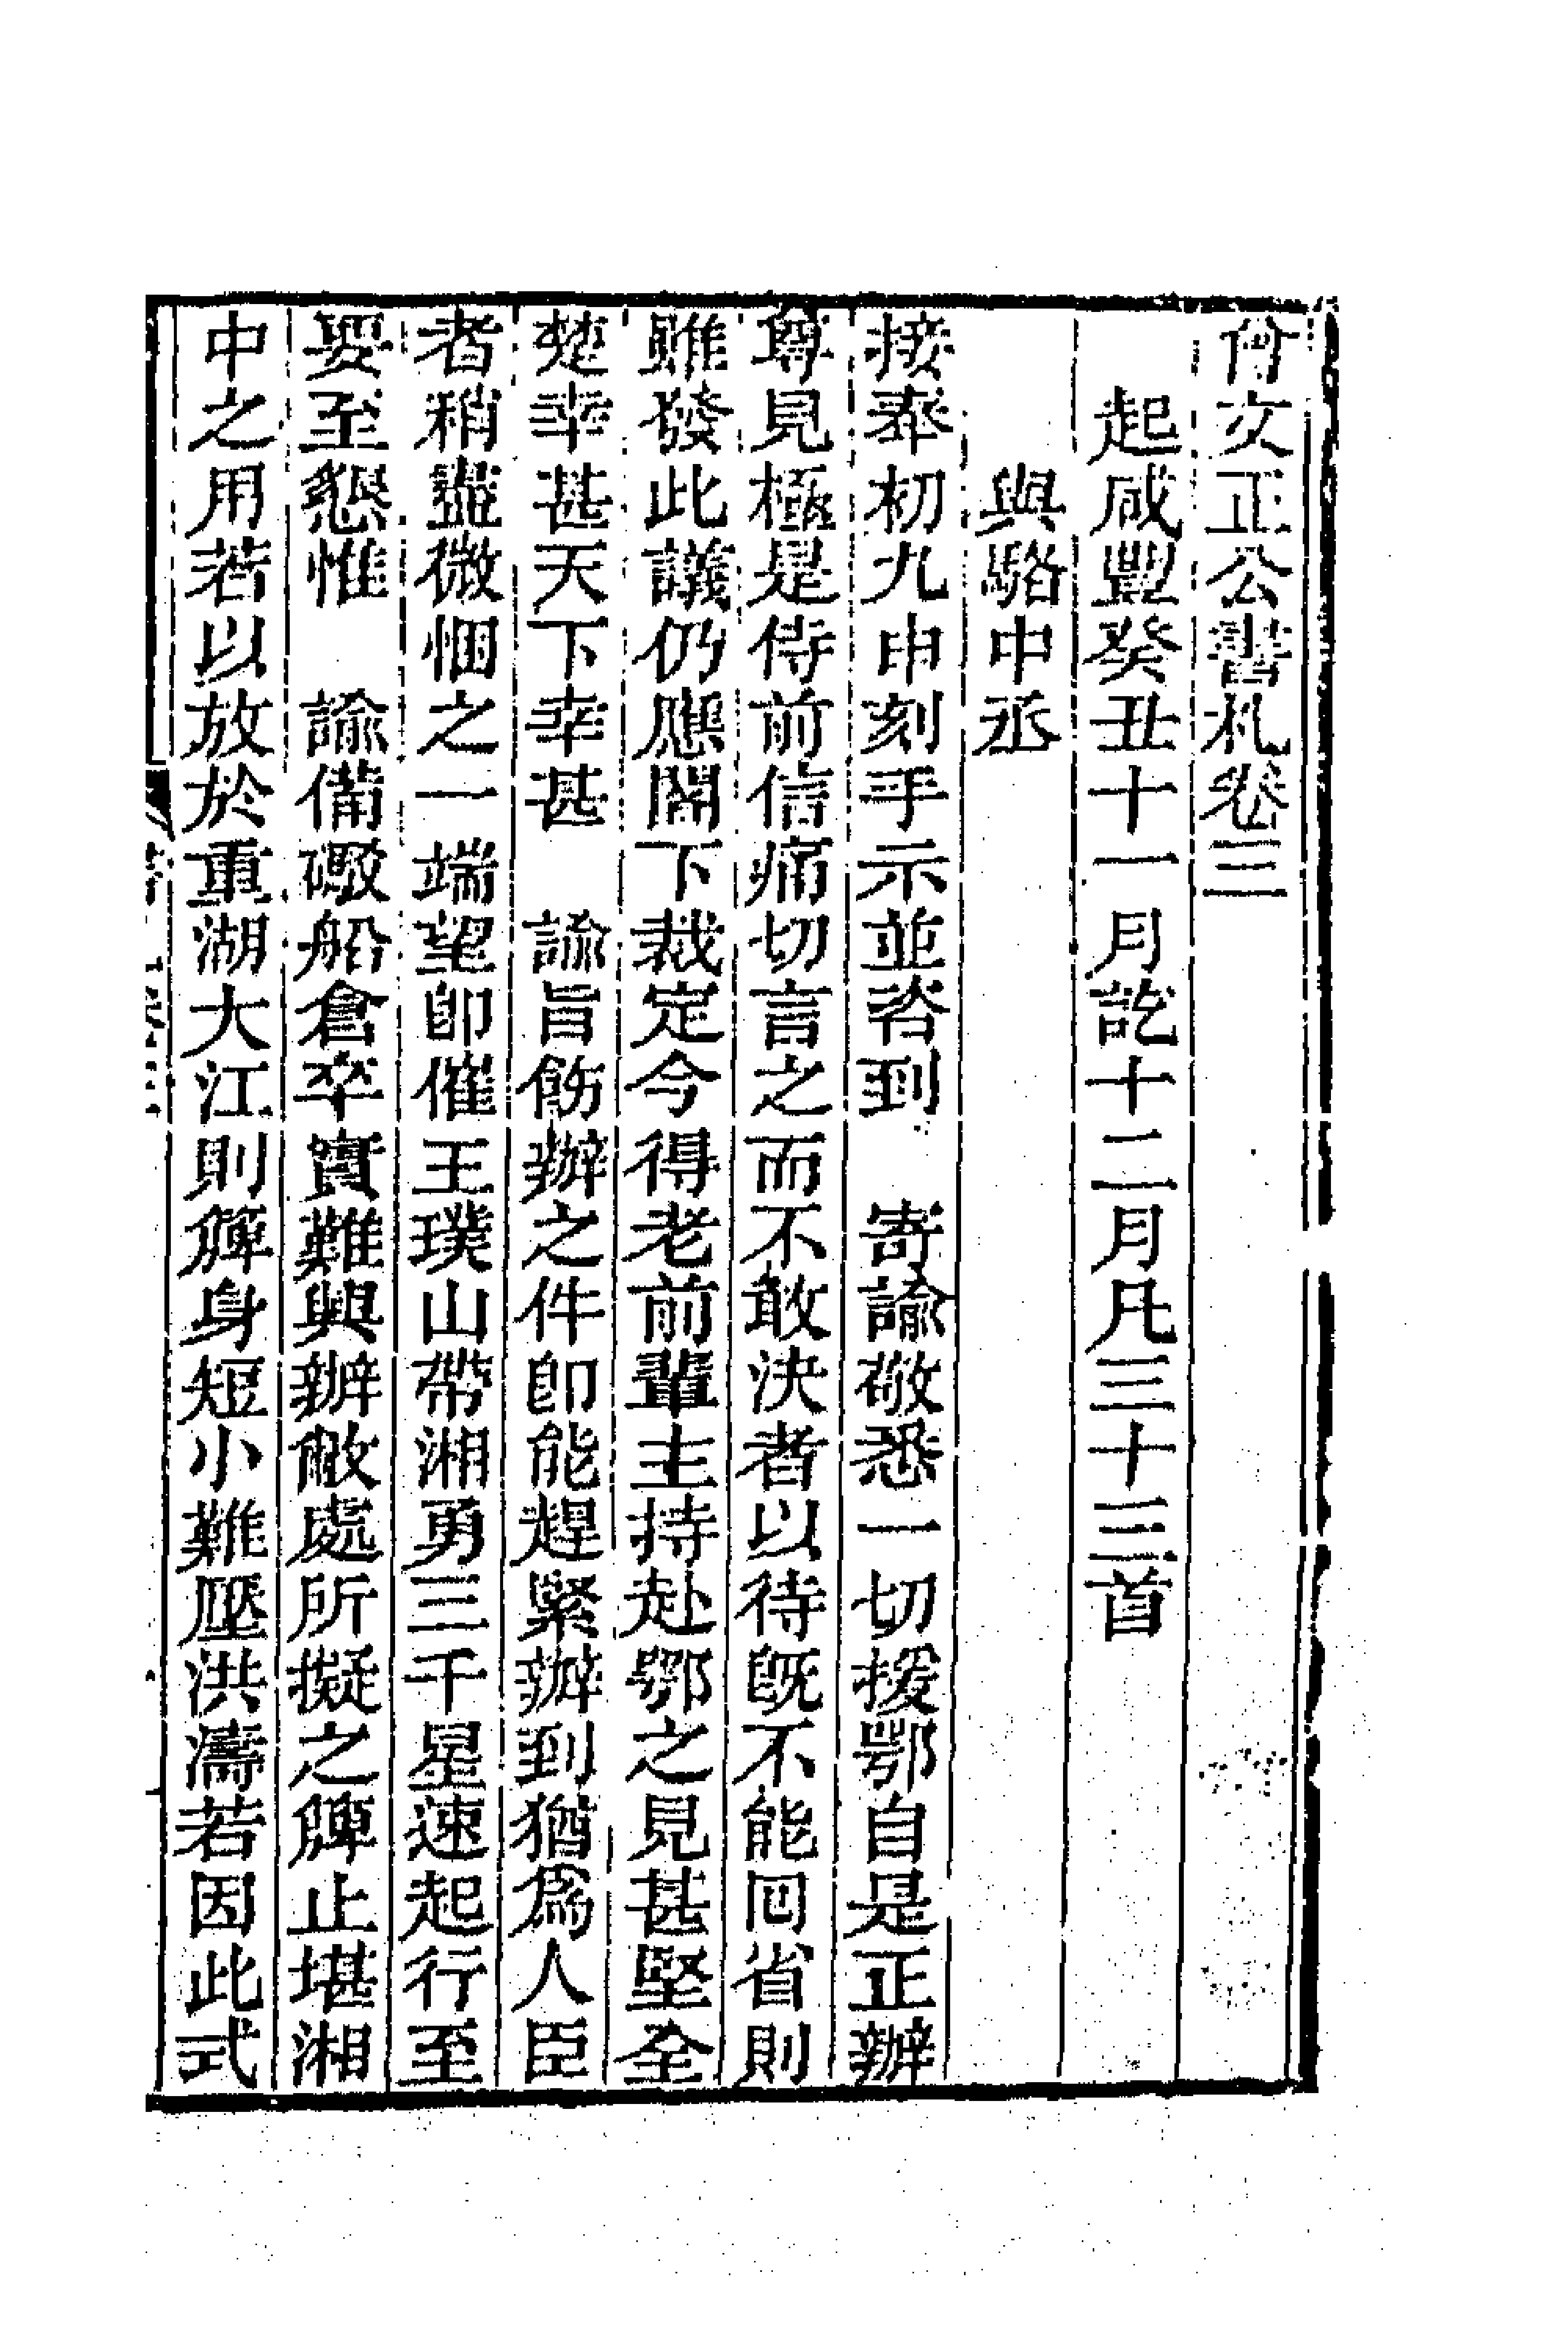 曾文正公書札卷三
起咸豐癸丑十一月訖十二月凡三十三首
與駱中丞
接奉初九申刻手示並咨到　寄諭敬悉一切援鄂自是正辦
尊見極是侍前信痛切言之而不敢決者以待旣不能回省則
雖發此議仍應閣下裁定今得老前輩主持赴鄂之見甚堅全
楚幸甚天下幸甚　諭旨飭辦之件卽能趕緊辦到猶爲人臣
者稍盡微悃之一端望卽催王璞山帶湘勇三千星速起行至
要至懇惟　諭備礮船倉卒實難興辦敝處所擬之䑀止堪湘
中之用若以放於重湖大江則䑀身短小難壓洪濤若因此式